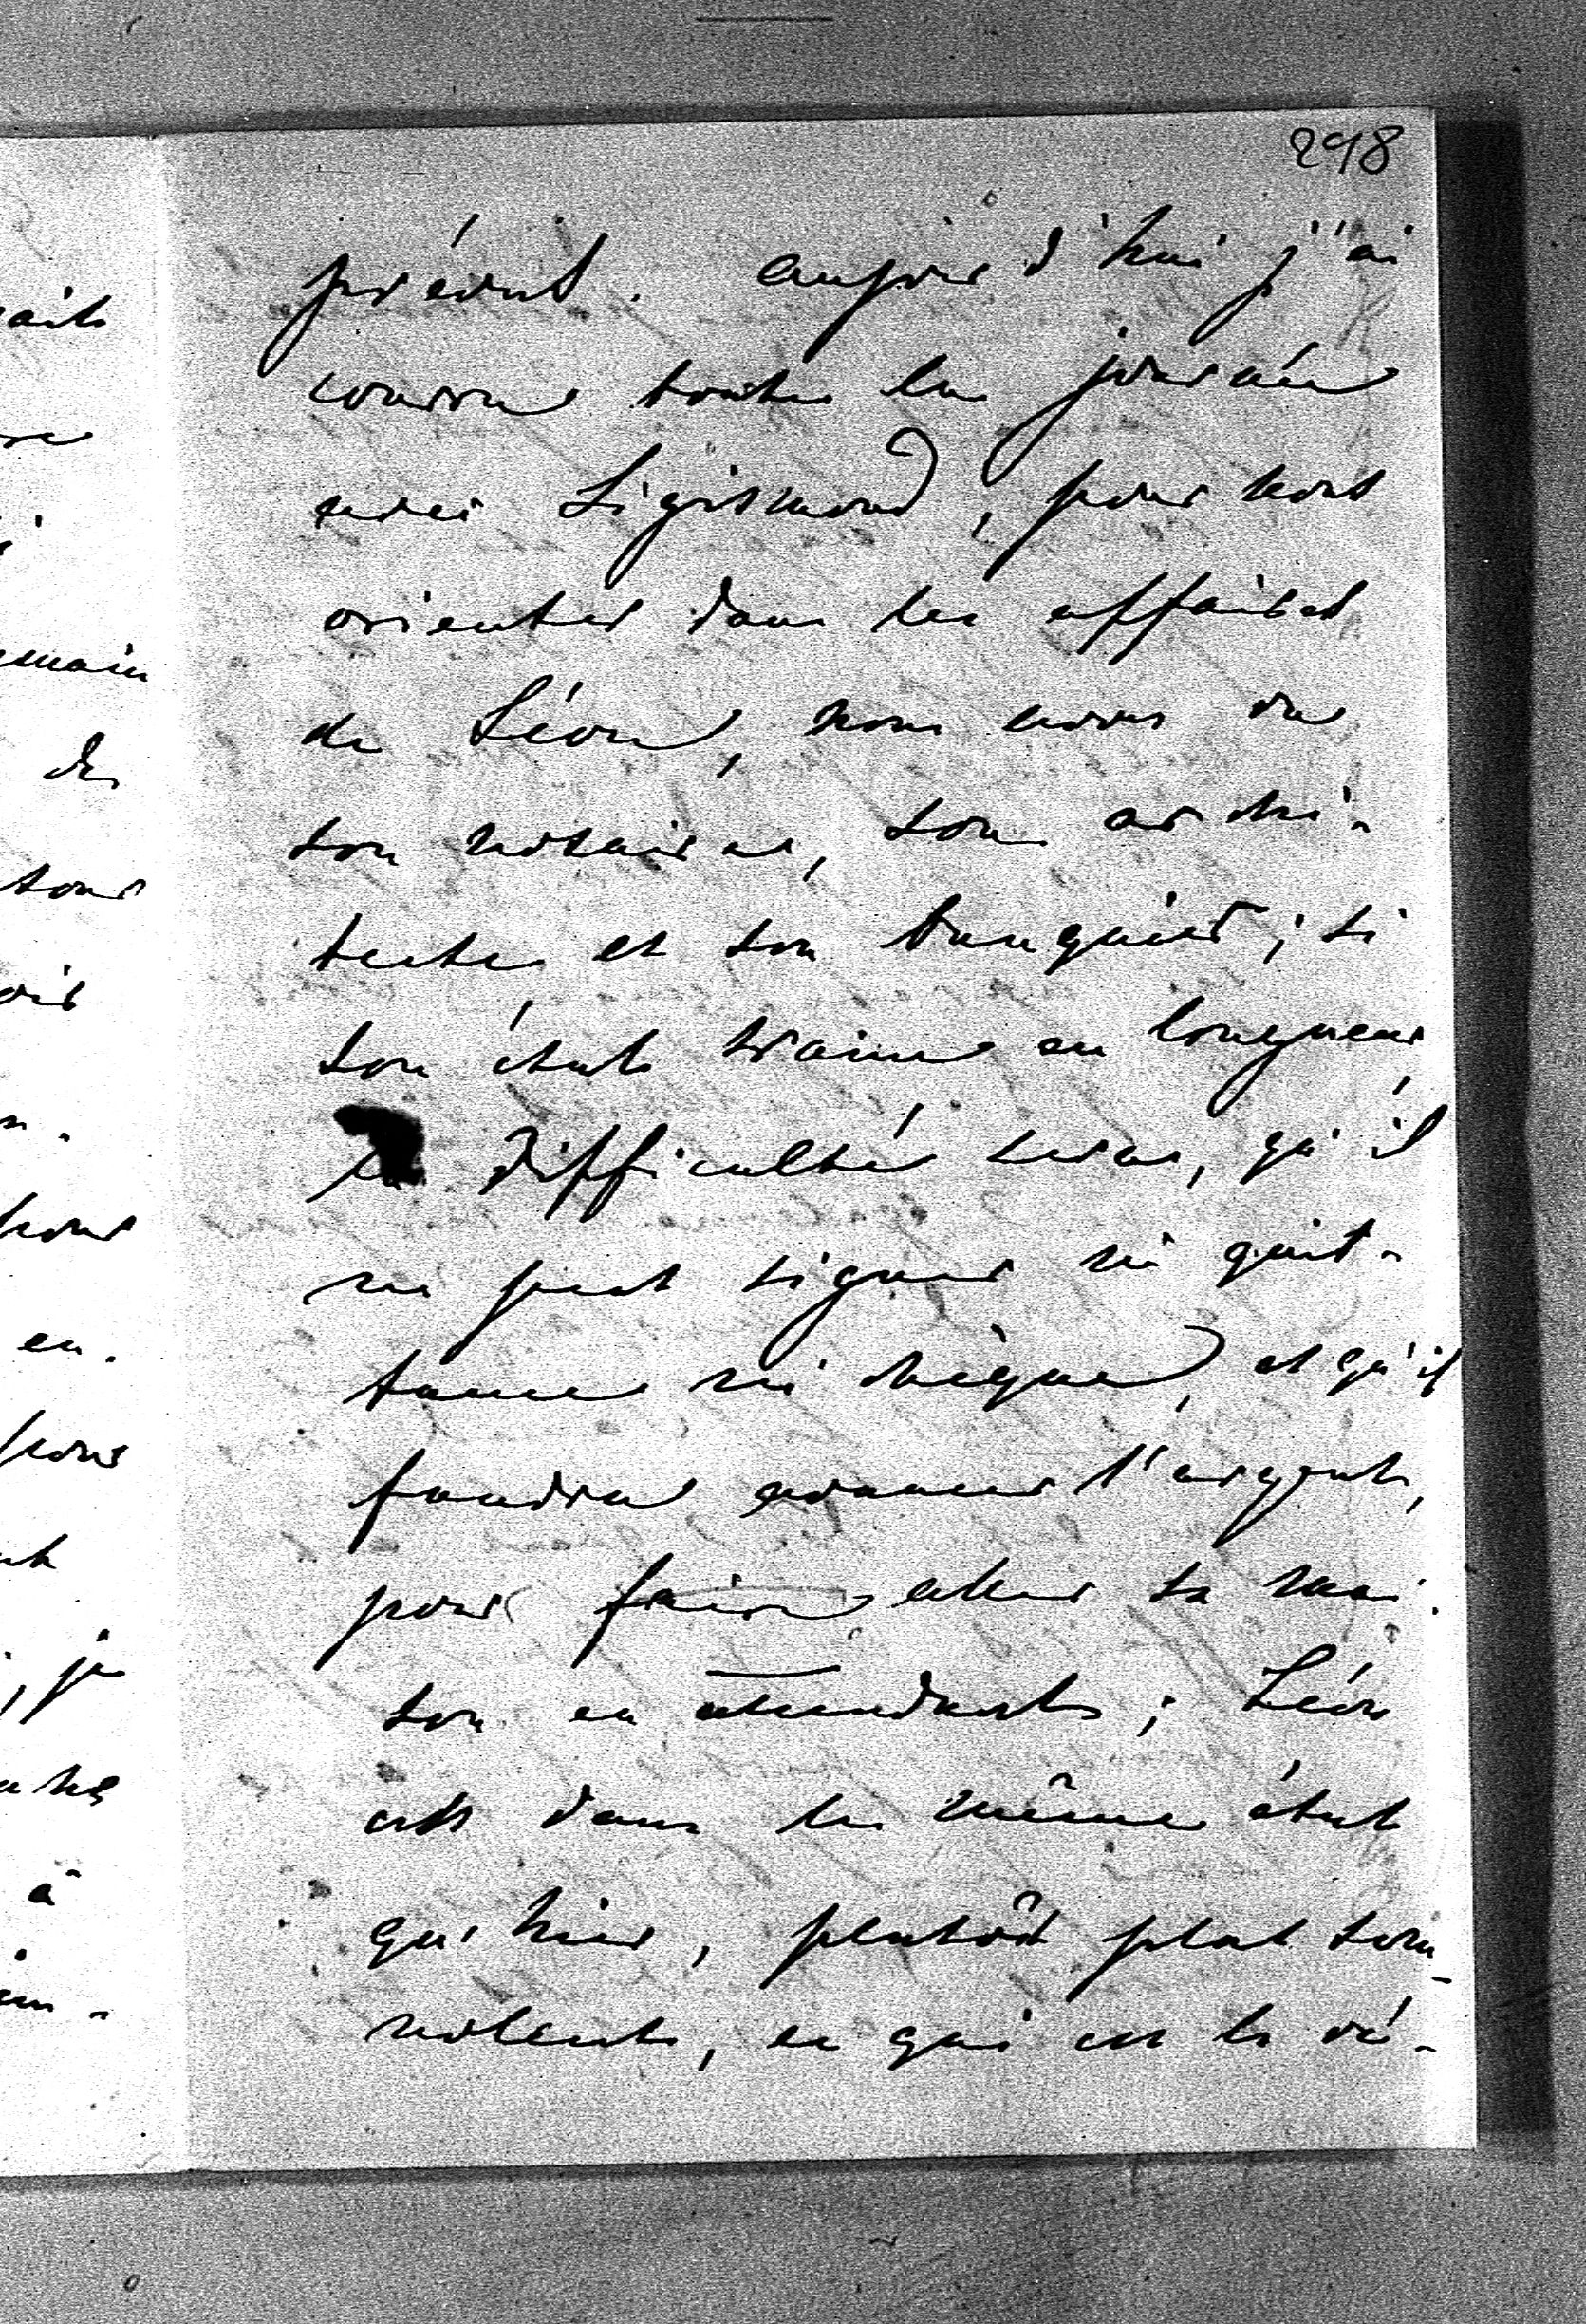 298
prévut. aujourd'hui j'ai
couru toute la journée
avec Sigismond, pour nous
orienter dans les affaires
de Léon, nous avons vu
son notaire, son archi-
tecte et son banquier; si
son état traine en longueur,
la difficulté sera, qu'il
ne peut signer ni quit-
tance ni chèque, et qu'il
faudra avancer l'argent,
pour faire aller sa mai-
son en attendant; Léon
est dans le même état
qu'hier, plutôt plus som-
nolent, ce qui est le ré-